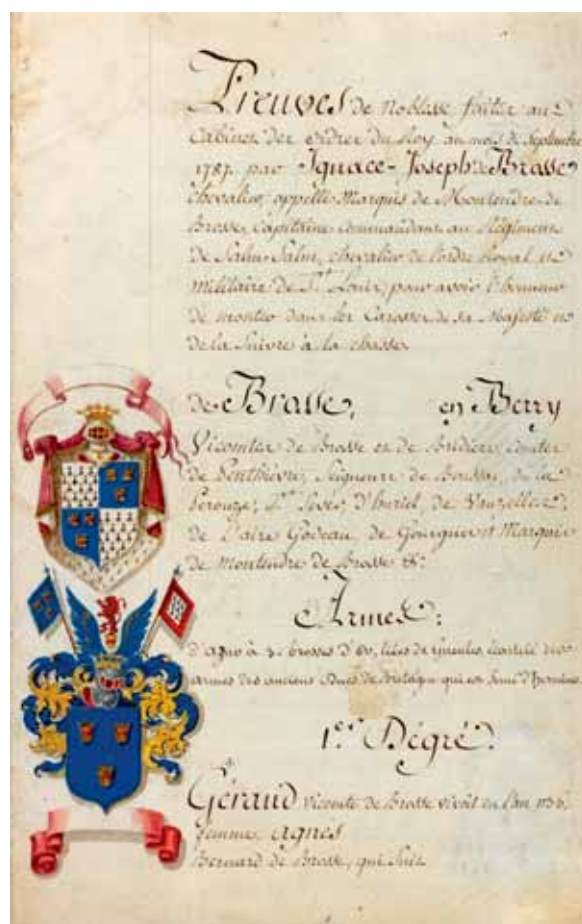 Preuves de Noblesse faites au
Cabinet des ordres du Roy au mois de Septembre
1787. par Ignace-Joseph de Brosse
Chevalier, appellé Marquis de Montendre de
Brosse, Capitaine commandant au Régiment
de Salm-Salm, chevalier de l'ordre Royal et
Militaire de St. Louis, pour avoir l'honneur
de monter dans les Carosses de sa Majesté et
de la suivre à la chasse.
de Brosse, en Berry
Vicomtes de Brosse et de Bridiers, Comtes
de Penthièvre, Seigneurs de Boussac, de la
Perouze, Ste. Sevère, d'huriel, de
de l'aire Godeau, de et Marquis
de Montendre de Brosse &c.
Armes:
d'azur à 3. brosses d'or, liées de Gueules, écartelé des
armes des anciens Ducs de Bretagne qui est semé d'hermines.
1er. Dégré.
Géraud Vicomte de Brosse vivoit en l'an
femme, Agnès
Bernard de Brosse, qui suit